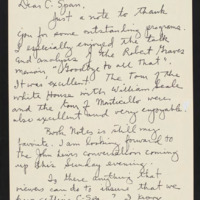 Dear C-Span,
Just a note to thank
you for some outstanding programs.
I especially enjoyed the talk
and analysis of the Robert Graves
memoir "Goodbye to all That".
It was excellent. The Tour of the
White House with William Seale
and the tour of Monticello were
also excellent and very enjoyable.
Book Notes is still my
favorite. I am looking forward to
the John Keegan conversation coming
up this Sunday evening.
Is there anything that
viewers can do to insure that we
C-Span? I know